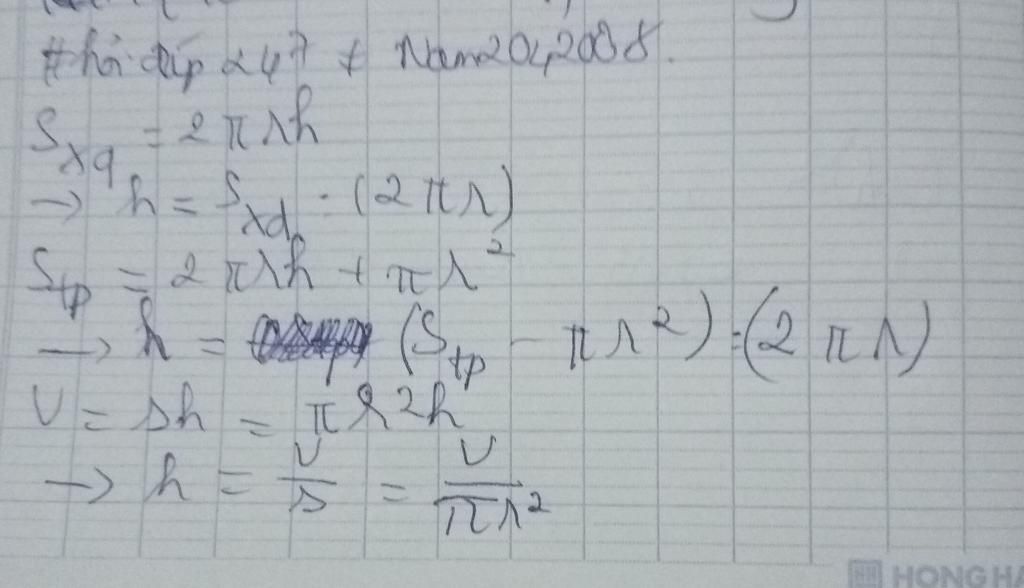 #hỏi đáp 247 + Nam2042008
S_xq = 2πrh
→ h = S_xq : (2πr)
S_tp = 2πrh + πr²
→ h = (S_tp - πr²) : (2πr)
V = sh = πr²h
→ h = V/s = V/πr²
HONG HA